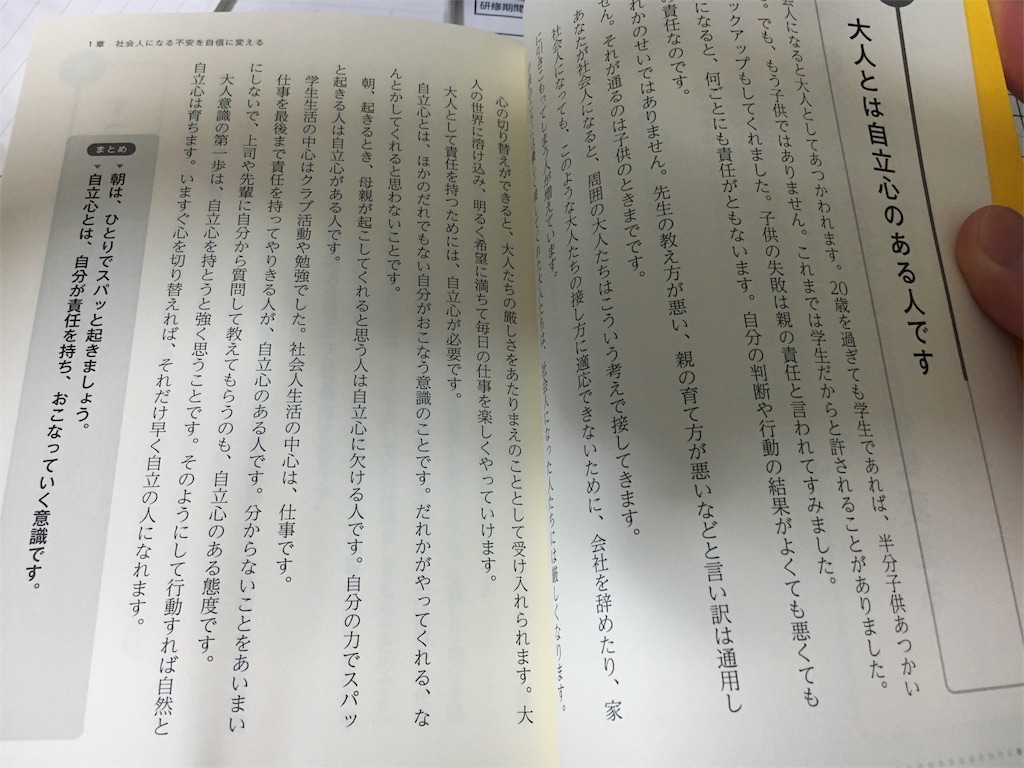 研修期間
大人とは自立心のある人です
会人になると大人としてあつかわれます。20歳を過ぎても学生であれば、半分子供あつかい
。でも、もう子供ではありません。これまでは学生だからと許されることがありました。
ックアップもしてくれました。子供の失敗は親の責任と言われてすみました。
になると、何ごとにも責任がともないます。自分の判断や行動の結果がよくても悪くても
の責任なのです。
れかのせいではありません。先生の教え方が悪い、親の育て方が悪いなどと言い訳は通用し
せん。それが通るのは子供のときまでです。
あなたが社会人になると、周囲の大人たちはこういう考えで接してきます。
社会人になっても、このような大人たちの接し方に適応できないために、会社を辞めたり、家
に引きこもってしまう人が増えています。
社会人になった人たちには厳しくなります。
1章 社会人になる不安を自信に変える
心の切り替えができると、大人たちの厳しさをあたりまえのこととして受け入れられます。大
人の世界に溶け込み、明るく希望に満ちて毎日の仕事を楽しくやっていけます。
大人として責任を持つためには、自立心が必要です。
自立心とは、ほかのだれでもない自分がおこなう意識のことです。だれかがやってくれる、な
んとかしてくれると思わないことです。
朝、起きるとき、母親が起こしてくれると思う人は自立心に欠ける人です。自分の力でスパッ
と起きる人は自立心がある人です。
学生生活の中心はクラブ活動や勉強でした。社会人生活の中心は、仕事です。
仕事を最後まで責任を持ってやりきる人が、自立心のある人です。分からないことをあいまい
にしないで、上司や先輩に自分から質問して教えてもらうのも、自立心のある態度です。
大人意識の第一歩は、自立心を持とうと強く思うことです。そのようにして行動すれば自然と
自立心は育ちます。いますぐ心を切り替えれば、それだけ早く自立の人になれます。
まとめ
朝は、ひとりでスパッと起きましょう。
自立心とは、自分が責任を持ち、おこなっていく意識です。